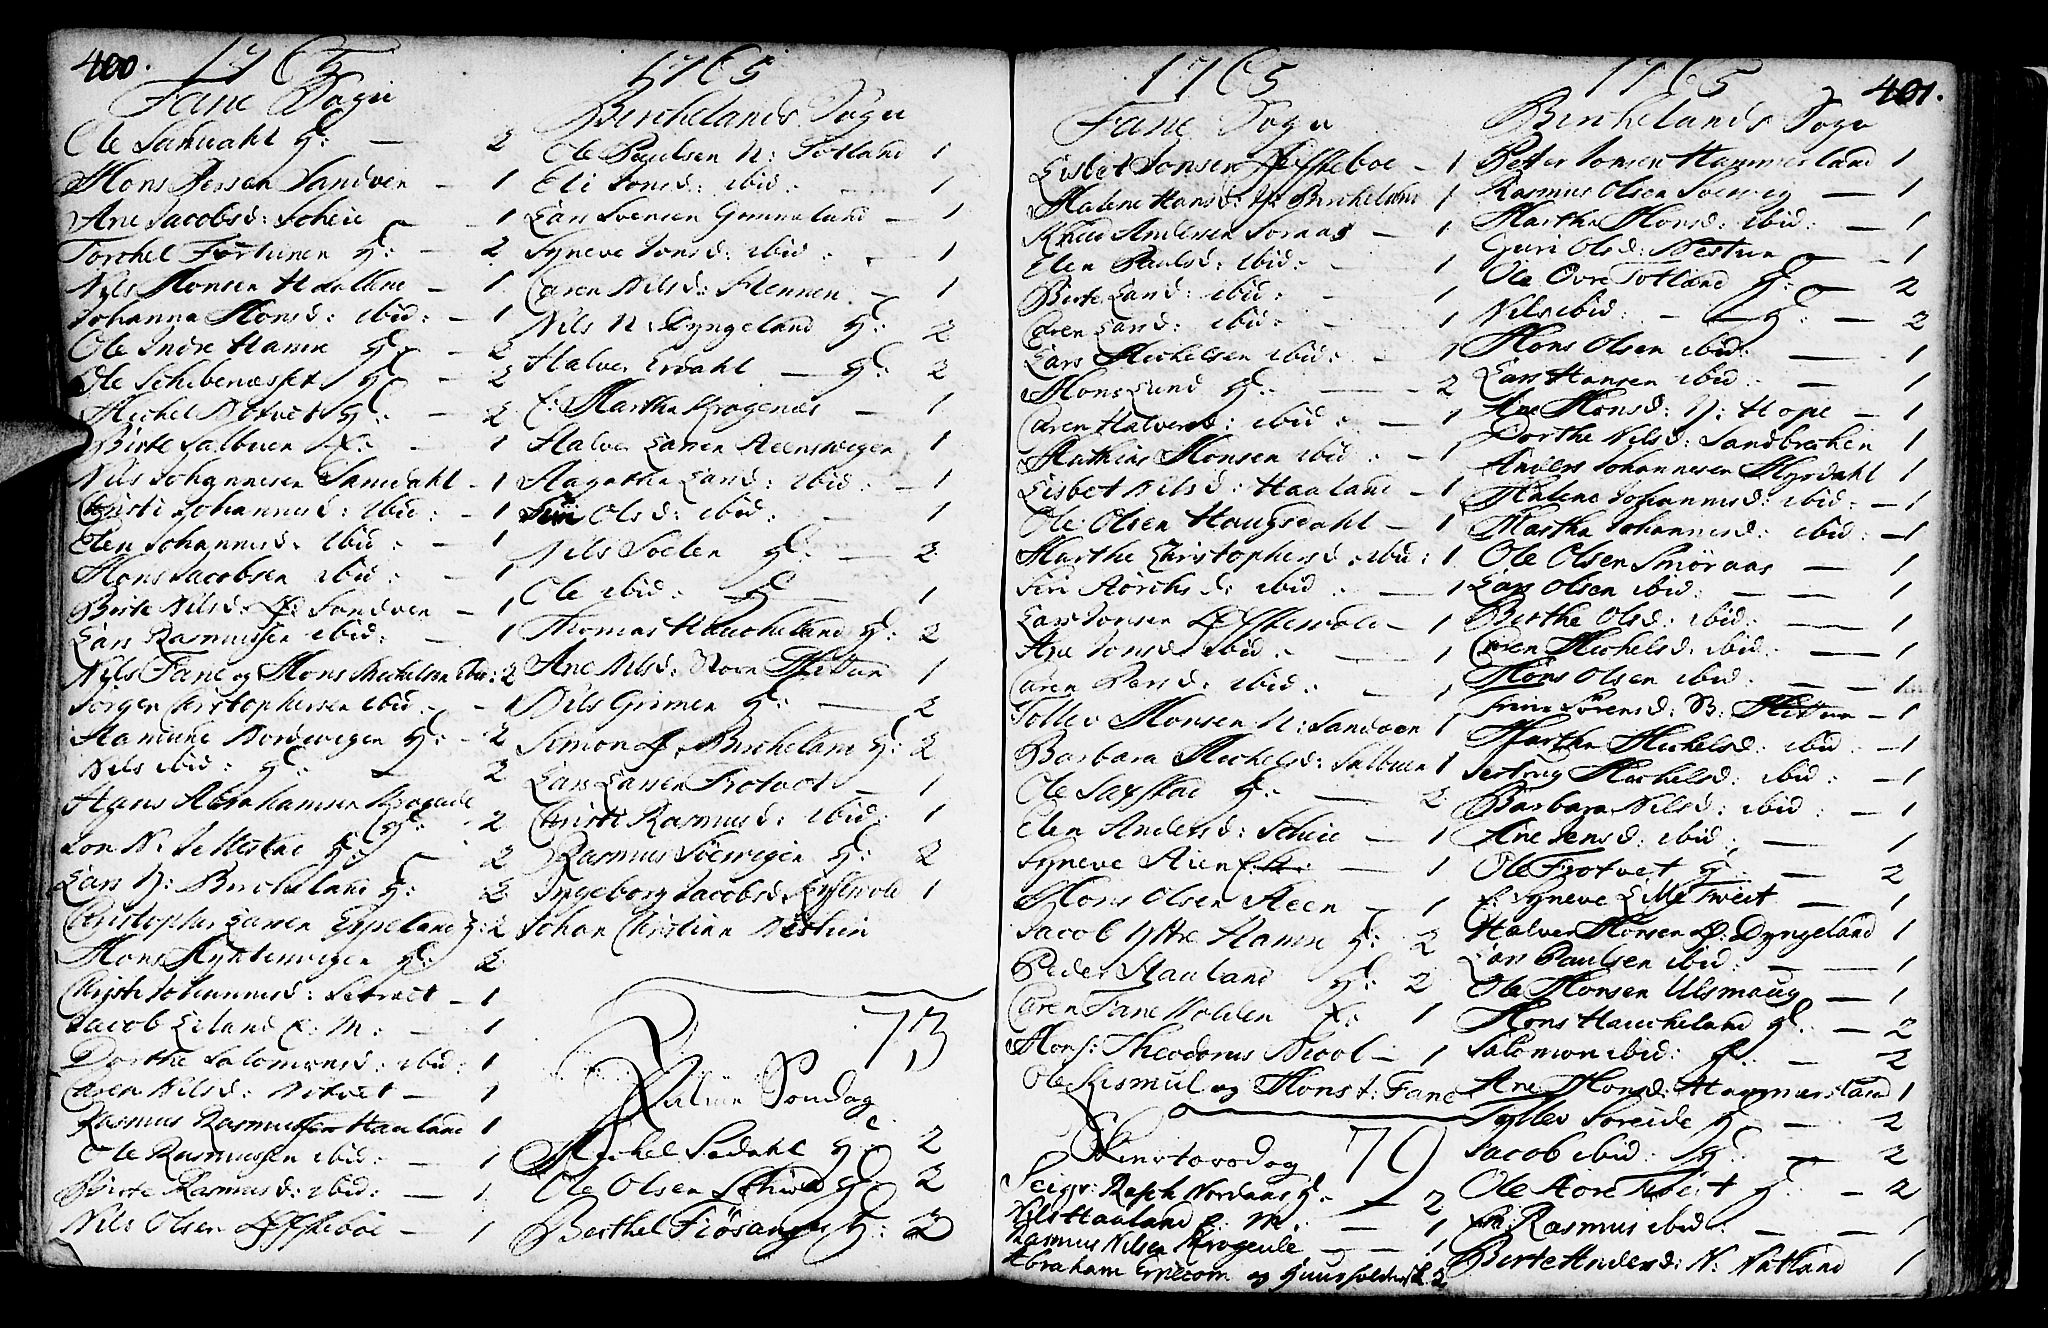 400. 1765
Fane Sogn
Ole Samdahl H: — 2
Mons Persen Sandven — 1
Ane Jacobsd: Scheie — 1
Torchel Fortunen H: 2
Nils Monsen Haalland — 1
Johanna Monsd: ibid: — 1
Ole Indre Hamre H: — 2
Ole Schibenæsset H: — 2
Michel Titvet H: — 2
Birte Salbuen X: — 1
Nils Johannesen Samdahl — 1
Christi Johannesd: ibid: — 1
Elen Johannesd. ibid: — 1
Mons Jacobsen ibid: — 1
Birte Nilsd: Ø: Sandven — 1
Lars Rasmussen ibid: — 1
Nils Fane og Mons Michelsen ibid: 2
Jørgen Christophersen ibid: — 1
Nordevigen H: — 2
Nils ibid: H: — 2
Hans Abrahamsen Krogeide
H: 2
Jon N: H: — 2
Lars Y: Bircheland H: 2
Christopher Larsen Eppeland H: 2
Mons Hyttenvegen H: 2
Christi Johannesd: Titvet — 1
Jacob Eiland E: M: — 1
Dorthe Salomonsd: ibid: 1
Caren Nilsd: Titvet — 1
Rasmus Rasmussen Haaland 1
Ole Rasmussen ibid: — 1
Birte Rasmusd: ibid: — 1
Nils Olsen Østeboe — 1
1765
Birchelands Sogn
Ole Paulsen N: Totland 1
Eli Jonsd: ibid: — 1
Lars Svensen Gommeland — 1
Syneve Jonsd: ibid: — 1
Caren Nilsd: Stennen — 1
Nils N: Dyngeland H: 2
Halver Erdahl — H: 2
E: Martha Krogenæs — 1
Halver Larsen Steensvegen 1
Magatha Larsd: ibid: — 1
Siri Olsd: ibid: — 1
Nils Soelen H: — 2
Ole ibid: H — 1
Thomas Haucheland H: 2
Ane Nilsd: Store Mildun 1
Nils Grimen H: — 2
Simon Ø: Bircheland H: 2
Lars Larsen Trotvet — 1
Christi Rasmusd: ibid: 1
Rasmus Søevigen H: 2
Ingeborg Jacobsd: 1
Johan Christian Nestun
73
Palme Søndag
Michel Sædahl H: 2
Ole Olsen H: 2
Berthel Fiøsanger H: 2
1765
Fane Sogn
Lisbet Jonsen Østeboe — 1
Malene Hansd: Y: Bircheland 1
Knud Andersen Soraas — 1
Elen Paulsd: ibid: — 1
Birte Larsd: ibid: — 1
Caren Larsd: ibid: — 1
Lars Michelsen ibid: — 1
Mons Lund H: — 2
Caren Halversd: ibid: — 1
Mathias Monsen ibid: — 1
Lisbet Nilsd: Haaland — 1
Ole Olsen Haugsdahl — 1
Marthe Christophersd: ibid: 1
Siri d: ibid: — 1
Lars Jonsen — 1
Ane Jonsd: ibid: — 1
Caren Persd: ibid: — 1
Tollev Monsen N: Sandven 1
Barbara Michelsd: Salbuen 1
Ole Saxstad H: — 2
Elen Andersd: Scheie — 1
Syneve — 1
Mons Olsen Steen — 1
Jacob Ytre Hamre H: 2
Peder Haaland H: 2
Caren Fane Nolden X: 1
Mons: Theodorus Nicol — 1
Ole Kismul og Mons t: Fane
79
Skiertorsdag
Seign: Rasch Nordaas H: 2
Nils Haaland E: M: — 1
Rasmus Nilsen Krogeide — 1
Abraham og Huusholderske 2
1765 401.
Birchelands Sogn
Petter Jonsen Hammersland 1
Rasmus Olsen Søevig — 1
Martha Monsd: ibid: — 1
Guri Olsd: Nestun — 1
Ole Øvre Totland H: — 2
Nils ibid: — H: — 2
Mons Olsen ibid: — 1
Lars Hansen ibid: — 1
Ane Monsd: Y: Hope — 1
Dorthe Nilsd: Sandbrechen 1
Anders Johannesen Myrdahl 1
Malene Johannesd: ibid: — 1
Martha Johannesd: ibid: — 1
Ole Olsen Smøraas — 1
Lars Olsen ibid: — 1
Berthe Olsd: ibid: — 1
Caren Michelsd: ibid: — 1
Mons Olsen ibid: — 1
Sørensd: B: Mildun — 1
Martha Michelsd: ibid: — 1
Michelsd: ibid: — 1
Barbara Nilsd: ibid: — 1
Ane Jensd: ibid: — 1
Ole Trotvet H: — 2
E: Syneve Lille Tveit — 1
Halver Monsen Ø: Dyngeland 1
Lars Paulsen ibid: — 1
Ole Monsen Ulsmaug — 1
Mons Haucheland H: — 2
Salomon ibid: H: — 2
Ane Monsd: Hammersland 1
Tyllev Søreide H — 2
Jacob ibid: H: — 2
Ole Aare Tveit H: — 2
Rasmus ibid: — 1
Birte Andersd: N: Natland 1